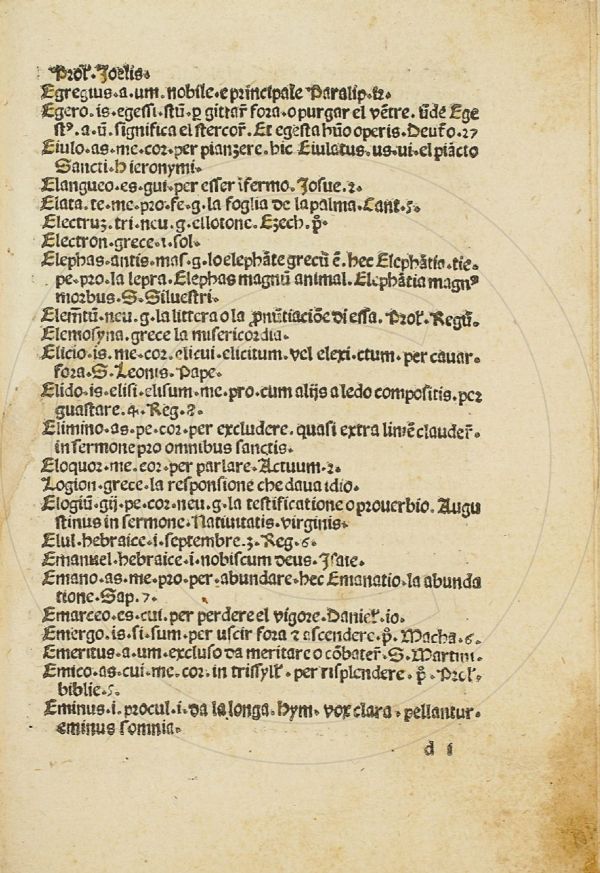 Prol̄. Joelis.
Egregius.a.um. nobile.e principale Paralip.
Egero.is.egessi.stū. ꝑ gittar̄ fora.o purgar el vētre. ūde Ege
a.ū. significa el stercor̄. Et egesta hūo operis. Deut̄o.27
Eiulo.as.me.cor.per piangere. hic Eiulatus.us.ui.el piācto
Sancti.Hieronymi.
Elangueo.es.gui.per esser īfermo. Josue.2.
Elata.te.me.pro.fe.g.la foglia de la palma. Cant.5.
Electruz.tri.neu.g.ellotone. Ezech.p̄.
Electron.grece.i.sol.
Elephas.antis.mas.g.lo elephāte grecū ē. hec Elephātia.tie.
pe.pro.la lepra. Elephas magnū animal. Elephātia magnꝰ
morbus.S.Silvestri.
Elem̄tū.neu.g.la littera o la ꝓnūtiaciōe di essa. Prol̄. Regū.
Elemosyna.grece la misericordia.
Elicio.is.me.cor.elicui.elicitum.vel elexi.ctum.per cauar.
fora.S.Leonis.Pape.
Elido.is.elisi.elisum.me.pro.cum alijs a ledo compositis.per
guastare.4.Reg.
Elimino.as.pe.cor.per excludere. quasi extra limē clauder̄.
in sermone pro omnibus sanctis.
Eloquor.me.cor.per parlare.Actuum.2.
Logion.grece.la responsione che daua idio.
Elogiū.gij.pe.cor.neu.g.la testificatione o prouerbio. Augu
stinus in sermone.Natiuitatis.virginis.
Elul.hebraice.i.septembre.3.Reg.6.
Emanuel.hebraice.i.nobiscum deus. Isaie.
Emano.as.me.pro.per.abundare.hec Emanatio.la abunda
tione.Sap.7.
Emarceo.es.cui.per perdere el vigore.Daniel̄.io.
Emergo.is.si.sum.per uscir fora ⁊ ascendere.p̄. Macha.6.
Emeritus.a.um.excluso da meritare o cōbater̄.S.Martini.
Emico.as.cui.me.cor.in trissyll̄. per risplendere.p̄.Prol̄.
biblie.5.
Eminus.i.procul.i.da la longa.hym.vox clara.pellantur.
eminus somnia.
d i